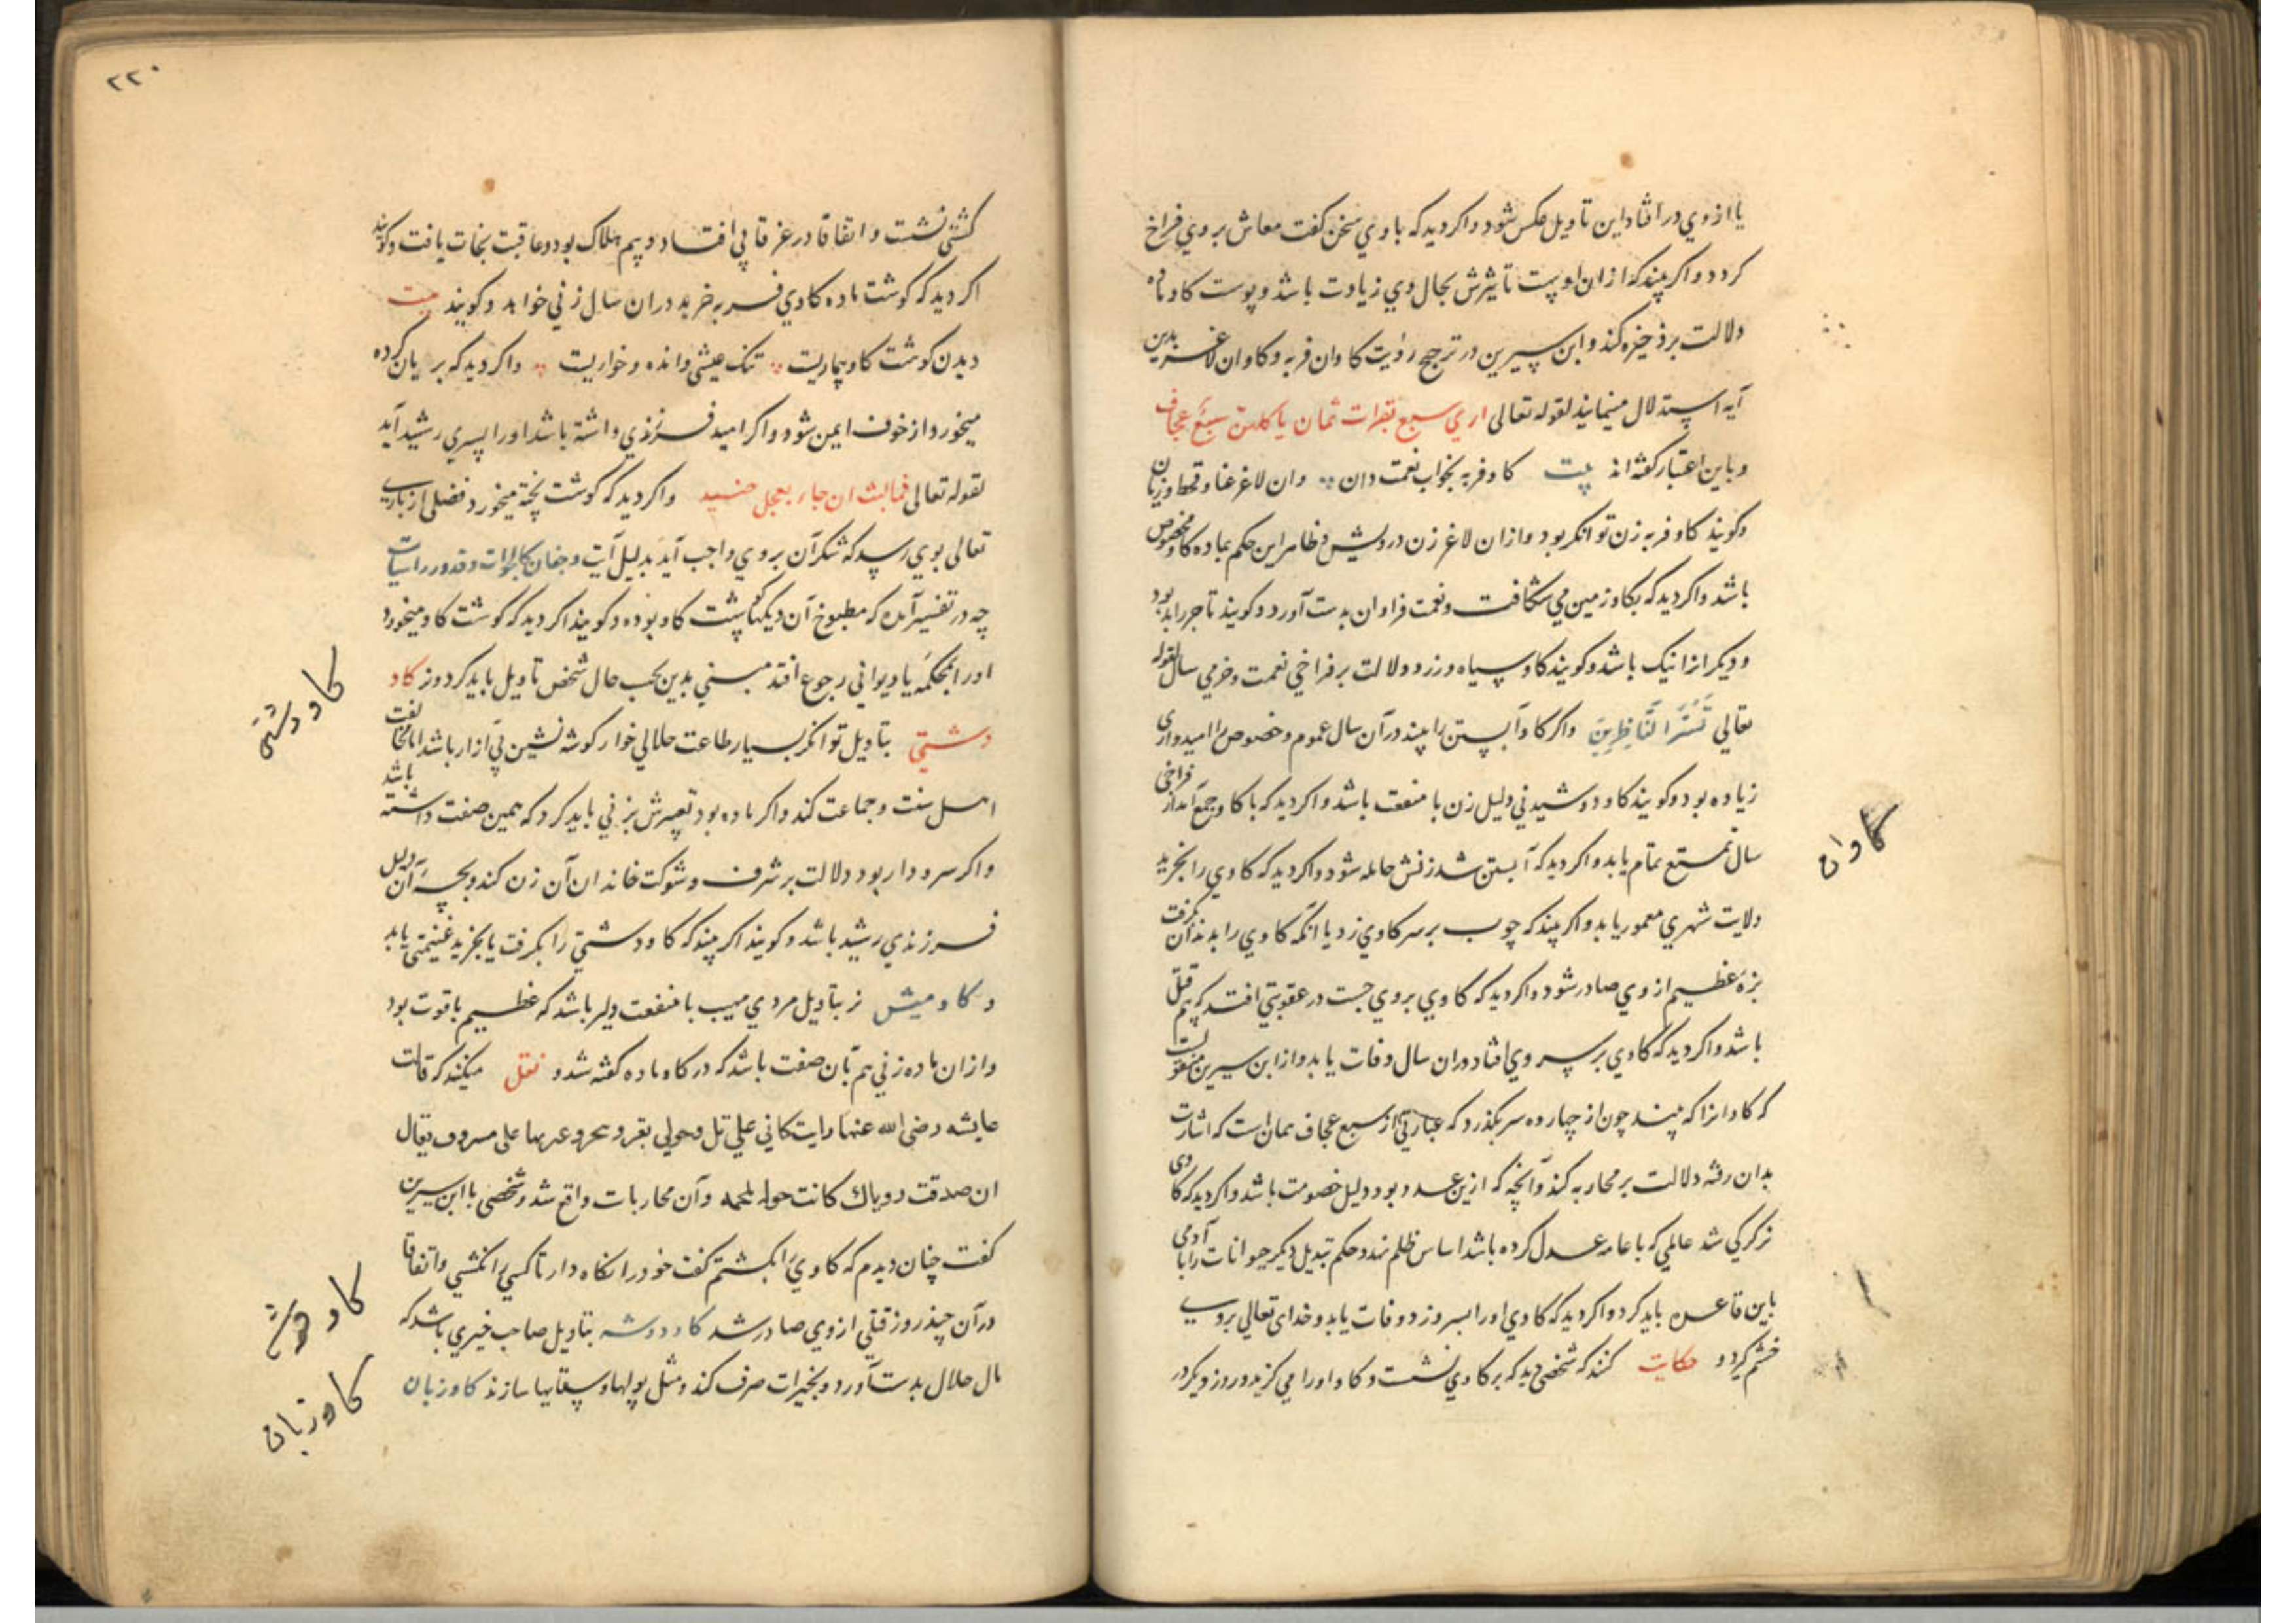 یا ازوي درافتاد این تاویل عکس شود واکر دید که با وي سخن کفت معاش بر وي فراخ
کردد واکر بیند که ازان او پست تاثیرش بحال وي زیادت باشد وپوست کاو ماده
دلالت بر ذخیره کند وابن سیرین در ترجیح رؤیت کاوان فربه وکاوان لاغر بدین
آیه استدلال مینماید لقوله تعالی اري سبع بقرات ثمان یاکلهن سبع عجاف
وباین اعتبار کفته اند بیت کاو فربه بخواب نعمت دان وان لاغر غنا وقحط وزیان
وکویند کاو فربه زن توانکر بود وازان لاغر زن درویش وظاهر این حکم بماده کاو مخصوص
باشد واکر دید که بکاو زمین مي شکافت ونعمت فراوان بدست آورد وکویند تاجر را بد بود
ودیکر انرا نیک باشد وکویند کاو سیاه وزرد دلالت بر فراخي نعمت وخرمي سال لقوله
تعالي تَسُرُّ النَّاظِرِینَ واکر کاو آبستن را بیند درآن سال عموم وخصوص را امیدواری
زیاده بود وکویند کاو دوشیدني دلیل زن با منفعت باشد واکر دید که با کاو جمع آمد از فراخی
سال تمتع تمام یابد واکر دید که آبستن شد زنش حامله شود واکر دید که کاوي را بخرید
ولایت شهري معمور یابد واکر بیند که چوب بر سر کاوي زد یا انکه کاوي را بدندان کرفت
بزه عظیم ازوي صادر شود واکر دید که کاوي بروي جست در عقوبتي افتد که بیم قتل
باشد واکر دید که کاوي بر سر وي افتاد دران سال وفات یابد واز ابن سیرین منقولست
که کاوانرا که بیند چون از چهارده سر بکذرد که عبارتي از سبع عجاف سمان است که اشارت
بدان رفته دلالت بر محاربه کند وآنچه که ازین عدد بود دلیل خصومت باشد واکر دید که کاوی
نر کرکي شد عاملي که با عامه عدل کرده باشد اساس ظلم نهد وحکم تبدیل دیکر حیوانات را با آدمی
باین قاعده باید کرد واکر دید که کاوي اورا بسر وزد وفات یابد وخدای تعالی بروی
خشم کیرد و حکایت کنند که شخصي دید که بر کاوي نشست وکاو اورا مي کزید وروز دیکر در
کاوان
۲۲۰
کشتي نشست واتفاقا در غرقابي افتاد وبیم هلاک بود وعاقبت نجات یافت وکویند
اکر دید که کوشت ماده کاوي فربه خرید دران سال زني خواهد وکویند بیت
دیدن کوشت کاو بیماریست تنک عیشي وانده وخواریست واکر دید که بریان کرده
میخورد از خوف ایمن شود واکر امید فرزندي داشته باشد اورا پسري رشید آید
لقوله تعالی فمالبث ان جاء بعجل حنیذ واکر دید که کوشت پخته میخورد فضلی از باری
تعالی بوي رسد که شکر آن بروي واجب آید بدلیل آیت وجفان کالجواب وقدور راسیات
چه در تفسیر آمده که مطبوخ آن دیکها پشت کاو بوده وکویند اکر دید که کوشت کاو میخورد
اورا بمحکمه یا دیواني رجوع افتد مبني بدین بحسب حال شخص تاویل باید کرد ونر کاو
دشتي بتاویل توانکر بسیار طاعت حلالي خوار کوشه نشین بي آزار باشد اما مخالفت
اهل سنت وجماعت کند واکر ماده بود تعبیرش بزني باید کرد که همین صفت داشته باشد
واکر سرودار بود دلالت بر شرف وشوکت خاندان آن زن کند وبچه آن دلیل
فرزندي رشید باشد وکویند اکر بیند که کاو دشتي را بکرفت یا بخرید غنیمتي یابد
و کاو میش نر بتاویل مردي مهیب با منفعت دلیر باشد که عظیم با قوت بود
وازان ماده زني هم بآن صفت باشد که در کاو ماده کفته شد و نقل میکنند که قالت
عایشه رضی الله عنها رایت کاني علي تل وحولي بقر وینحر وعبرها علی مسروق فقال
ان صدقت رویاك کانت حوله ملحمه وآن محاربات واقع شد وشخصي با ابن سیرین
کفت چنان دیدم که کاوي را بکشتم کفت خود را نکاه دار تا کسي را نکشي واتفاقا
درآن چند روز قتلي ازوي صادر شد کاو دوشه بتاویل صاحب خیري باشد که
مال حلال بدست آورد وبخیرات صرف کند ومثل پولها وسقایها سازند کاو زبان
کاو دشتی
کاو دوشه
کاو زبان